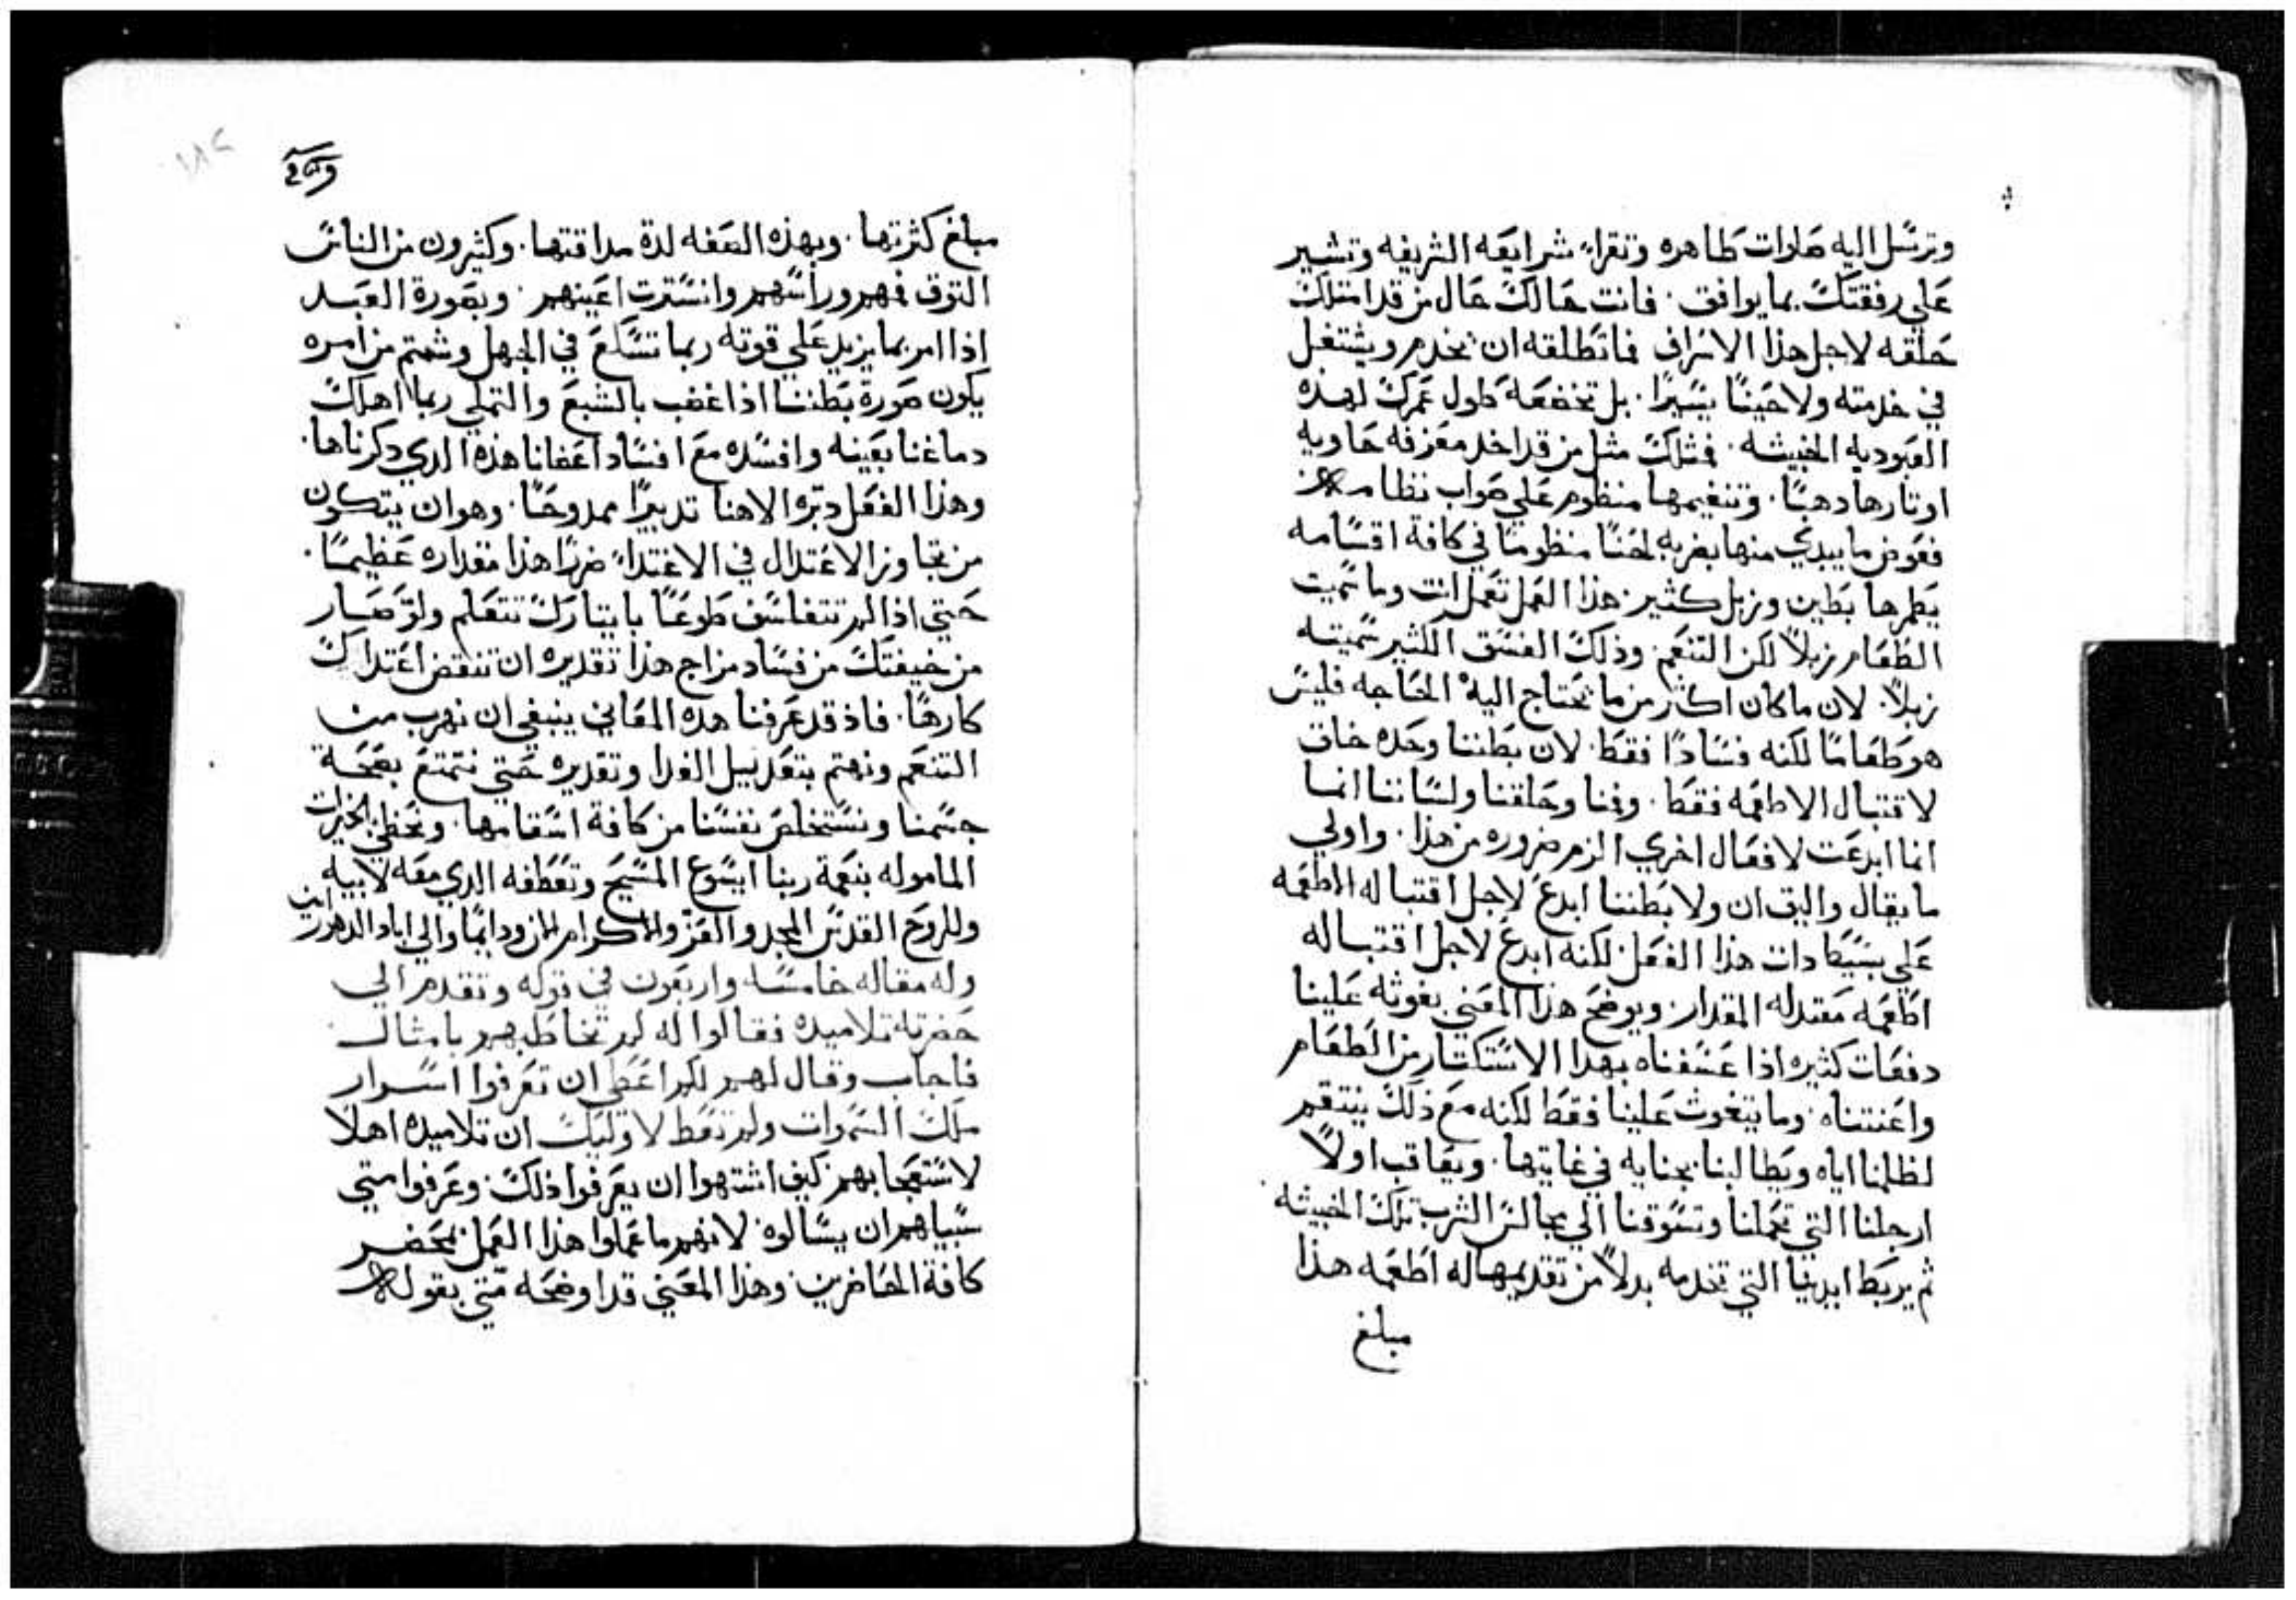 وترسل اليه صلوات طاهره وتقراء شرايعه الشريفه وتشير
علي رفقتك بما يوافق. فانت حالك حال من قد امتلك
حلقه لاجل هذا الاسراف فما تطلقه ان يخدم ويشتغل
في خدمته ولا حينًا يسيرًا. بل تخضعه طول عمرك لهده
العبوديه الخبيثه. فمثلك مثل من قد اخد معزفه حاويه
اوتارها دهبًا. وتنغيمها منظوم علي صواب نظامه
فعوض ما يبدي منها بضربه لحنًا منظومًا في كافة اقسامه
يطمرها بطين وزبل كثير. هذا العمل تعمل انت وما سميت
الطعام زبلاً لكن التنعم. وذلك الفسق الكثير سميته
زبلاً. لان ما كان اكثر من ما تحتاج اليه الحاجه فليس
هو طعامًا لكنه فسادًا فقط. لان بطننا وحده خاق
لاقتبال الاطعمه فقط. وفمنا وحلقنا ولساننا انما
انما ابدعت لافعال اخري الزم ضروره من هذا. واولي
ما يقال واليق ان ولا بطننا ابدع لاجل اقتباله الاطعمه
علي بسيط دات هذا الفعل لكنه ابدع لاجل اقتباله
اطعمه معتدله المقدار. ويوضح هذا المعني بغوثه علينا
دفعات كثيره اذا عسفناه بهدا الاستكتار من الطعام
واعنتناه. وما يتغوث علينا فقط لكنه مع ذلك ينتقم
لظلمنا اياه ويطالبنا بجنايه في غايتها. ويعاقب اولاً
ارجلنا التي تحملنا وتسوقنا الي مجالس الشرب تلك الخبيثه
ثم يربط ايدينا التي تخدمه بدلاً من تقديمها له اطعمه هذا
مبلغ
مبلغ كثرتها. وبهذه الصفه لدة مداقتها. وكثيرون من الناس
التوق فمهم وراسهم وانسترت اعينهم. وبصورة العبد
اذا امر بما يزيد علي قوته ربما تسلع في الجهل وشتم من امره
يكون صورة بطننا اذا غضب بالشبع والتملي ربما اهلك
دماغنا بعينه وافسده مع افساد اعضانا هذه الدي دكرناها.
وهذا الفعل دبره الاهنا تدبيرًا ممدوحًا. وهو ان يتكون
من تجاوز الاعتدال في الاغتداء ضررًا هذا مقداره عظيمًا.
حتي اذا لم تتفلسف طوعًا بايتارك تتعلم ولو صار
من خيفتك من فساد مزاج هذا تقديره ان تنقص اغتداك
كارهًا. فاذ قد عرفنا هده المعاني ينبغي ان نهرب من
التنعم ونهتم بتعديل الغدا وتقديره حتي نتمتع بصحة
جسمنا ونستخلص نفسنا من كافة اسقامها. ونحظي بالخيرات
الماموله بنعمة ربنا ايسوع المسيح وتعطفه الدي معه لابيه
وللروح القدس المجد والعز والاكرام الان ودايمًا والي اباد الدهور امين
وله مقاله خامسه واربعون في قوله وتقدم الي
حضرته تلاميده فقالوا له لم تخاطبهم بامثال
فاجاب وقال لهم لكم اعطي ان تعرفوا اسرار
ملك السموات ولم تعط لاوليك ان تلاميده اهلاً
لاستعجابهم كيف اشتهوا ان يعرفوا ذلك. وعرفوا متي
سبيلهم ان يسالوه لانهم ما عملوا هذا العمل بمحضر
كافة الحاضرين. وهذا المعني قد اوضحه متي بقوله